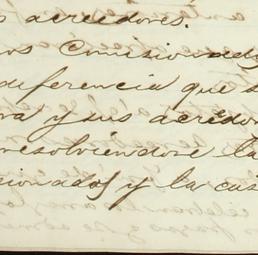 s acreedores.
os Comisionados
diferencia que s
ra y sus acredor
resolviendose la
cionados y la cas